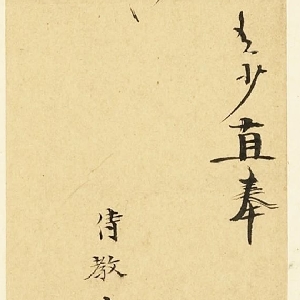 少直奉
侍教